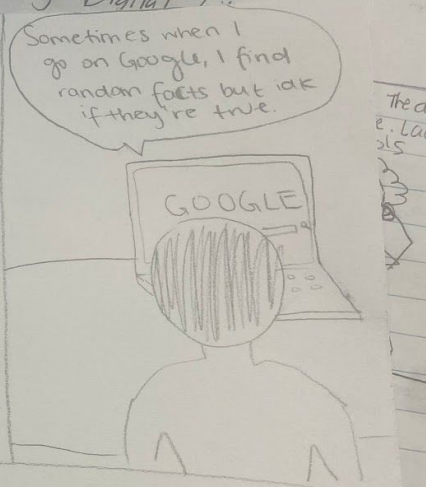 Digital
Sometimes when I
go on Google, I find
random facts but idk
if they're true.
GOOGLE
The